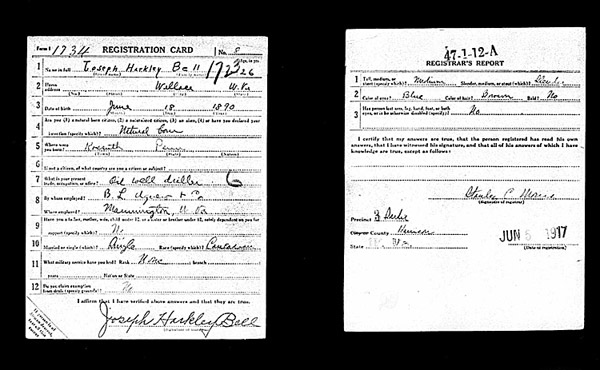 Form 1 1734 REGISTRATION CARD No. 8
1 Name in full Joseph Hackley Bell Age, in yrs. 26
2 Home address Wallace W. Va
3 Date of birth June 18 1890
4 Are you (1) a natural born citizen, (2) a naturalized citizen, (3) an alien, (4) or have you declared your
intention (specify which)? Natural Born
5 Where were you born? Penn
6 If not a citizen, of what country are you a citizen or subject?
7 What is your present trade, occupation, or office? Oil well driller 6
8 By whom employed? B. L.
Where employed? Mannington, W. Va
9 Have you a father, mother, wife, child under 12, or a sister or brother under 12, solely dependent on you for
support (specify which)? No
10 Married or single (which)? Single Race (specify which)? Caucasian
11 What military service have you had? Rank None branch
years Nation or State
12 Do you claim exemption from draft (specify grounds)? No
I affirm that I have verified above answers and that they are true.
Joseph Hackley Bell
47-1-12-A
REGISTRAR'S REPORT
1 Tall, medium, or short (specify which)? Medium Slender, medium, or stout (which)? Slender
2 Color of eyes? Blue Color of hair? Brown Bald? No
3 Has person lost arm, leg, hand, foot, or both eyes, or is he otherwise disabled (specify)? No
I certify that my answers are true, that the person registered has read his own
answers, that I have witnessed his signature, and that all of his answers of which I have
knowledge are true, except as follows:
(Signature of registrar)
Precinct
City or County Harrison
State W. Va
JUN 5 1917
(Date of registration)